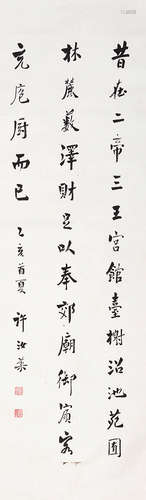 昔在二帝三王宮館臺榭沼池苑囿
林麓藪澤財足以奉郊廟御賓客
充庖厨而已
乙亥首夏 許汝棻